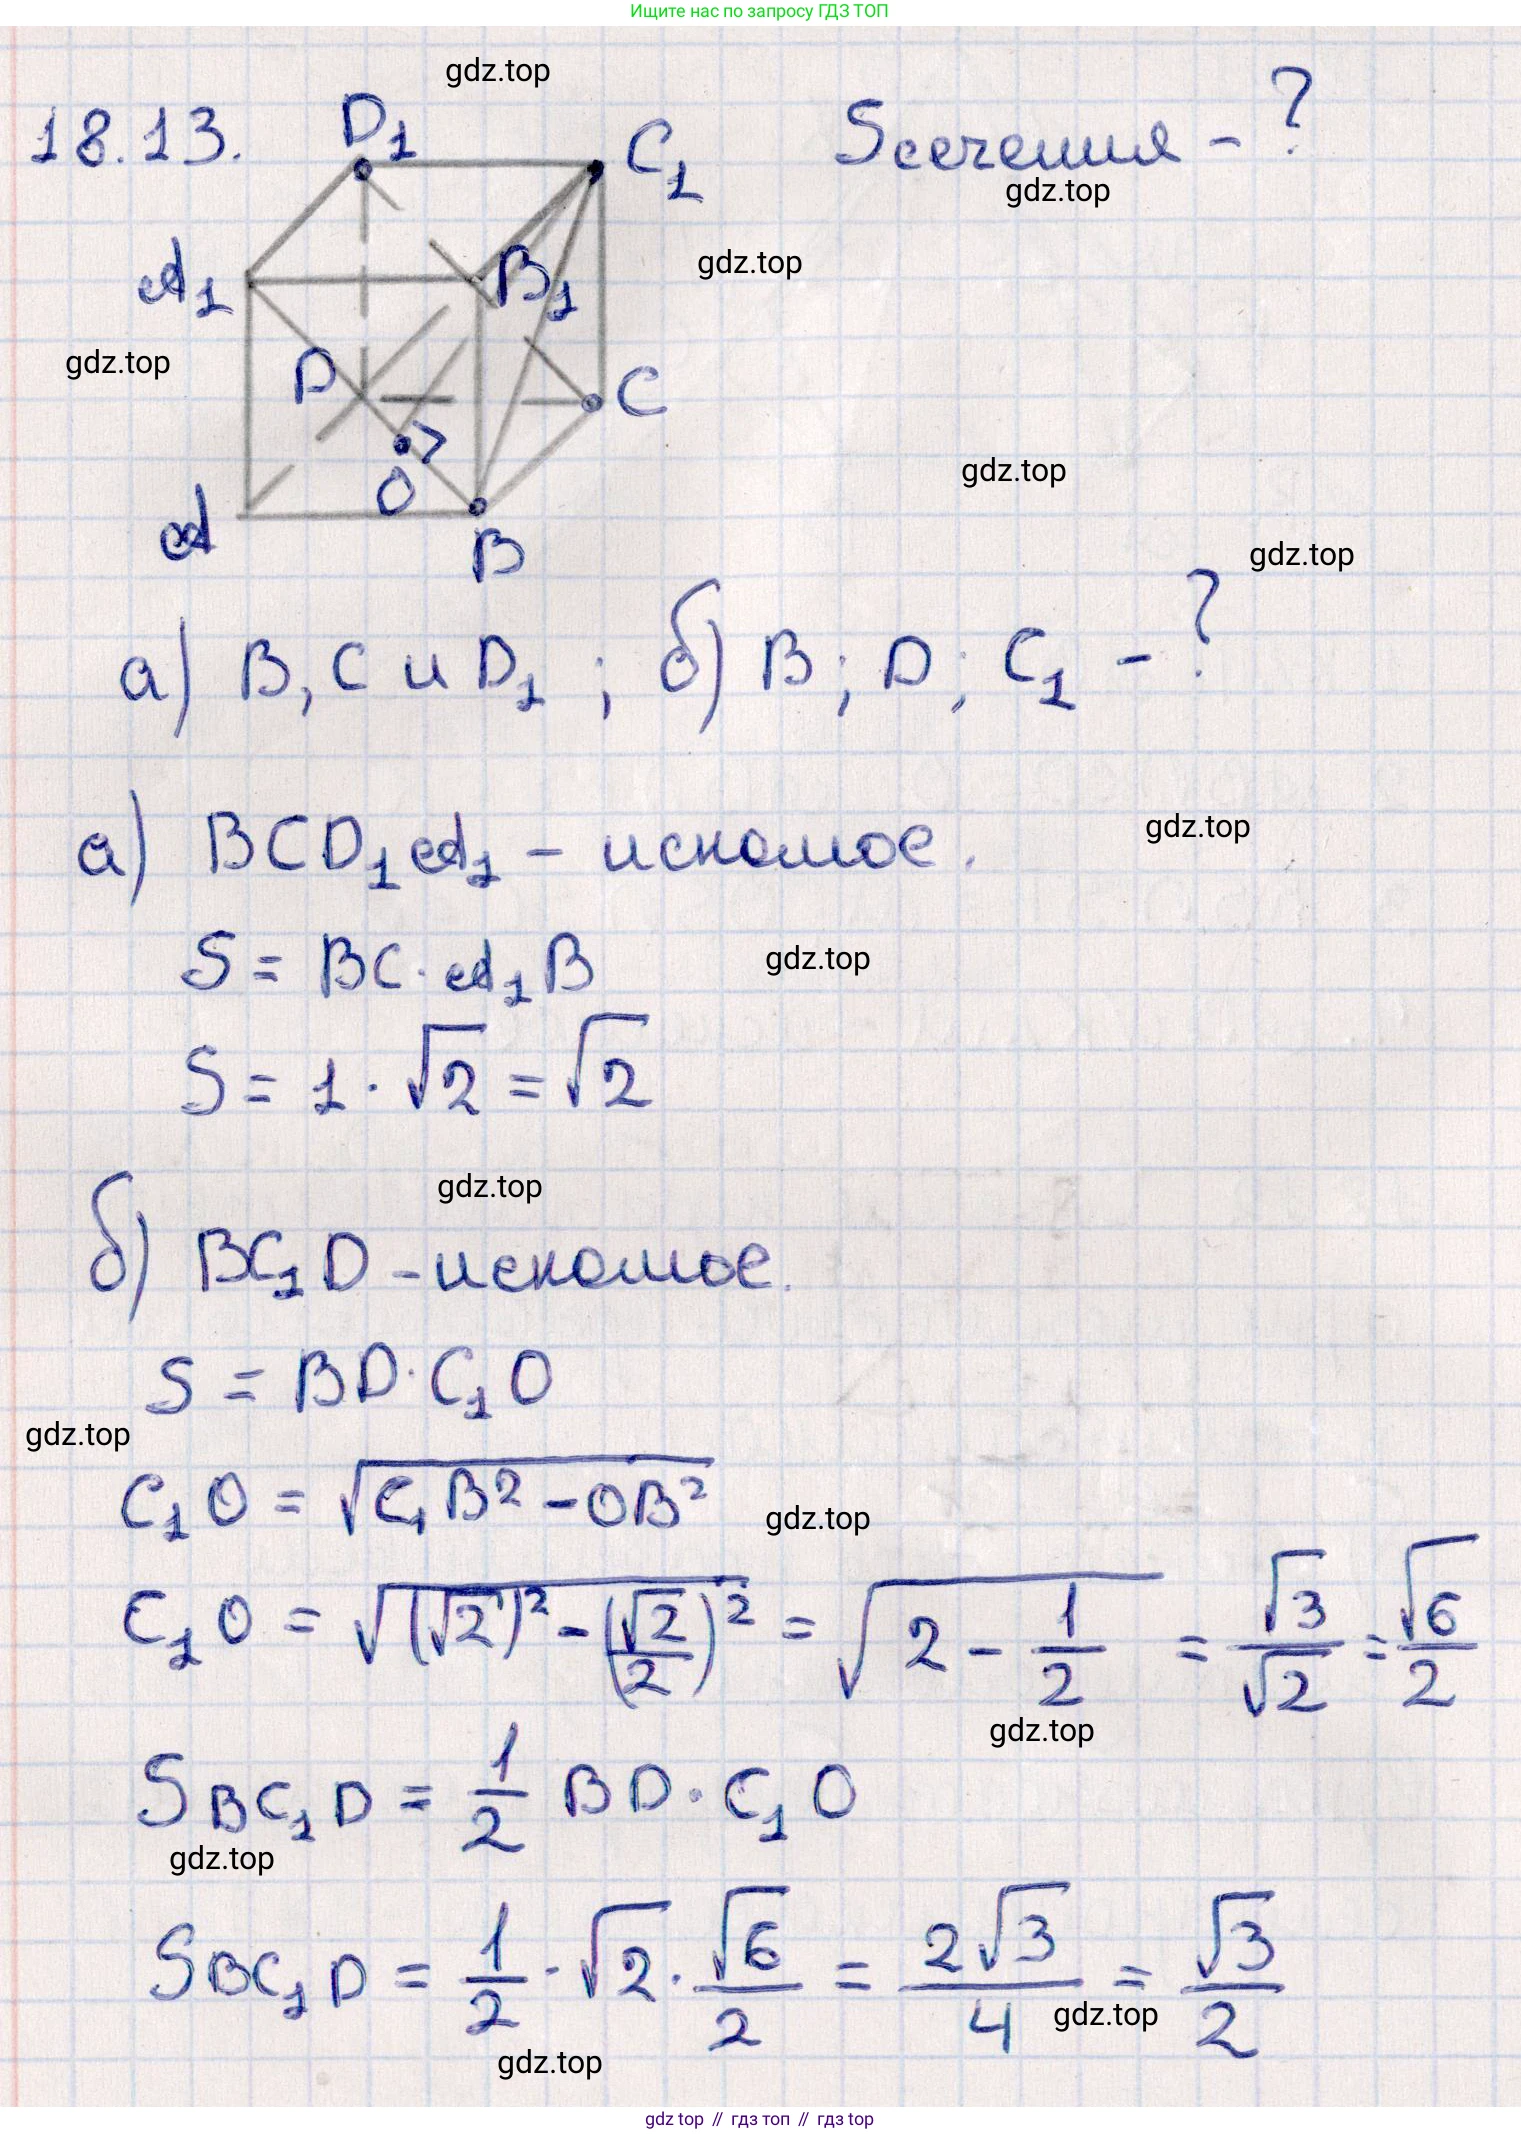 Ищите нас по запросу ГДЗ ТОП
gdz.top
18.13. D₁ C₁ Sсечения - ?
gdz.top
A₁ B₁ gdz.top
gdz.top D C
gdz.top
O
A B gdz.top
а) B, C и D₁ ; б) B; D; C₁ - ?
а) BCD₁A₁ - искомое. gdz.top
S = BC · A₁B gdz.top
S = 1 · √2 = √2
gdz.top
б) BC₁D - искомое.
S = BD · C₁O
gdz.top
C₁O = √(C₁B² - OB²) gdz.top
C₁O = √((√2)² - (√2/2)²) = √(2 - 1/2) = √3/√2 = √6/2
gdz.top
S BC₁D = 1/2 BD · C₁O
gdz.top
S BC₁D = 1/2 · √2 · √6/2 = 2√3/4 = √3/2
gdz.top
gdz.top
gdz top // гдз топ // гдз top